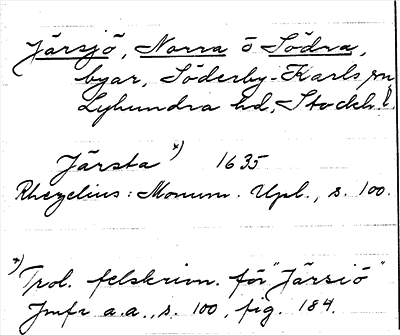 Järsjö, Norra o Södra,
byar, Söderby-Karls sn
Lyhundra hd, Stockh. l.
Järsta x) 1635
Rhezelius: Monum. Upl., s. 100.
x) Trol. felskrivn. för "Järsiö"
Jmfr a.a., s. 100, fig. 184.